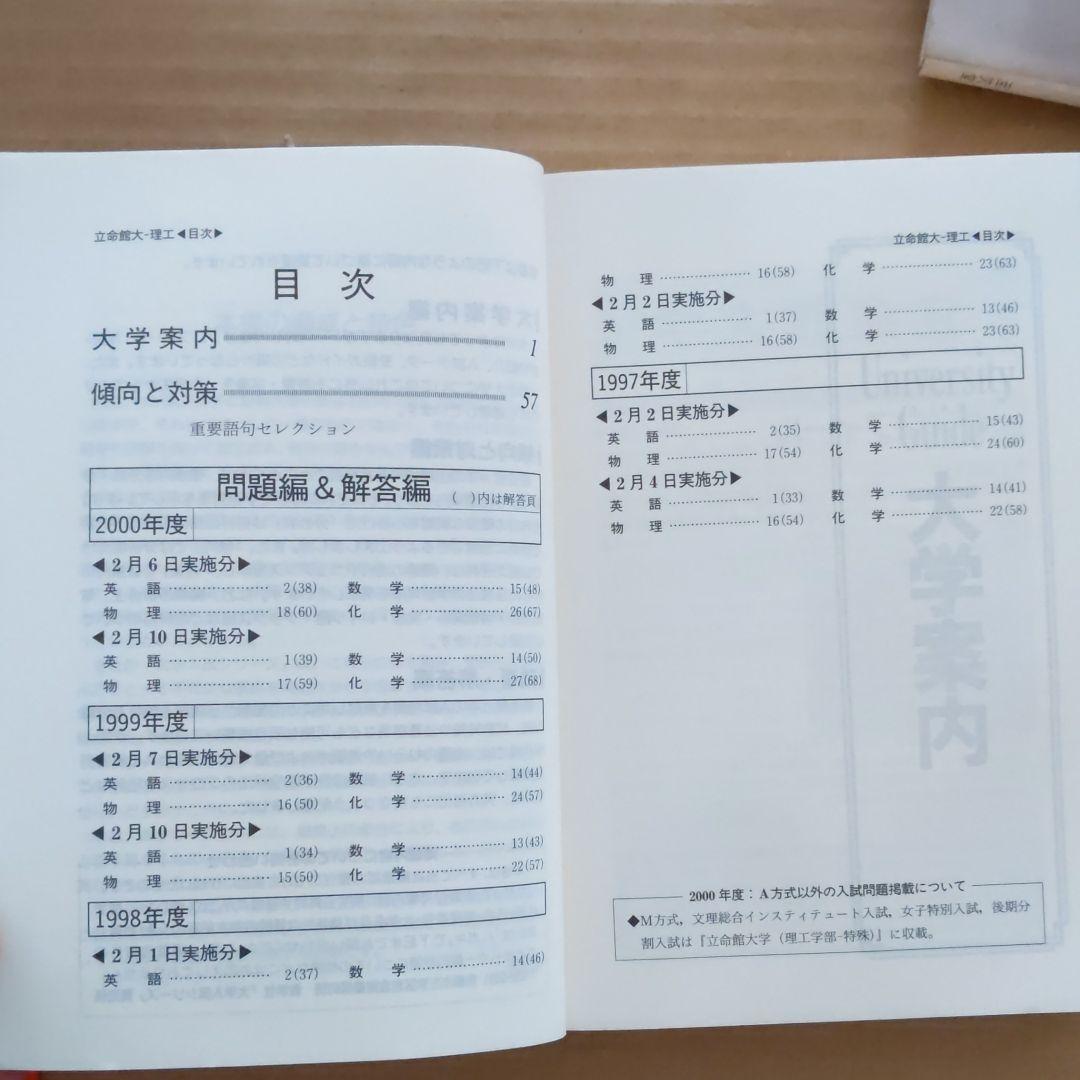 立命館大-理工◀目次▶
目 次
大学案内 1
傾向と対策 57
重要語句セレクション
問題編＆解答編 （ ）内は解答頁
2000年度
◀2月6日実施分▶
英 語 ………………… 2(38) 数 学 ………………… 15(48)
物 理 ………………… 18(60) 化 学 ………………… 26(67)
◀2月10日実施分▶
英 語 ………………… 1(39) 数 学 ………………… 14(50)
物 理 ………………… 17(59) 化 学 ………………… 27(68)
1999年度
◀2月7日実施分▶
英 語 ………………… 2(36) 数 学 ………………… 14(44)
物 理 ………………… 16(50) 化 学 ………………… 24(57)
◀2月10日実施分▶
英 語 ………………… 1(34) 数 学 ………………… 13(43)
物 理 ………………… 15(50) 化 学 ………………… 22(57)
1998年度
◀2月1日実施分▶
英 語 ………………… 2(37) 数 学 ………………… 14(46)
立命館大-理工◀目次▶
物 理 ………………… 16(58) 化 学 ………………… 23(63)
◀2月2日実施分▶
英 語 ………………… 1(37) 数 学 ………………… 13(46)
物 理 ………………… 16(58) 化 学 ………………… 23(63)
1997年度
◀2月2日実施分▶
英 語 ………………… 2(35) 数 学 ………………… 15(43)
物 理 ………………… 17(54) 化 学 ………………… 24(60)
◀2月4日実施分▶
英 語 ………………… 1(33) 数 学 ………………… 14(41)
物 理 ………………… 16(54) 化 学 ………………… 22(58)
University
Guide
大学案内
2000年度：A方式以外の入試問題掲載について
◆M方式，文理総合インスティテュート入試，女子特別入試，後期分
割入試は『立命館大学（理工学部-特殊）』に収載。